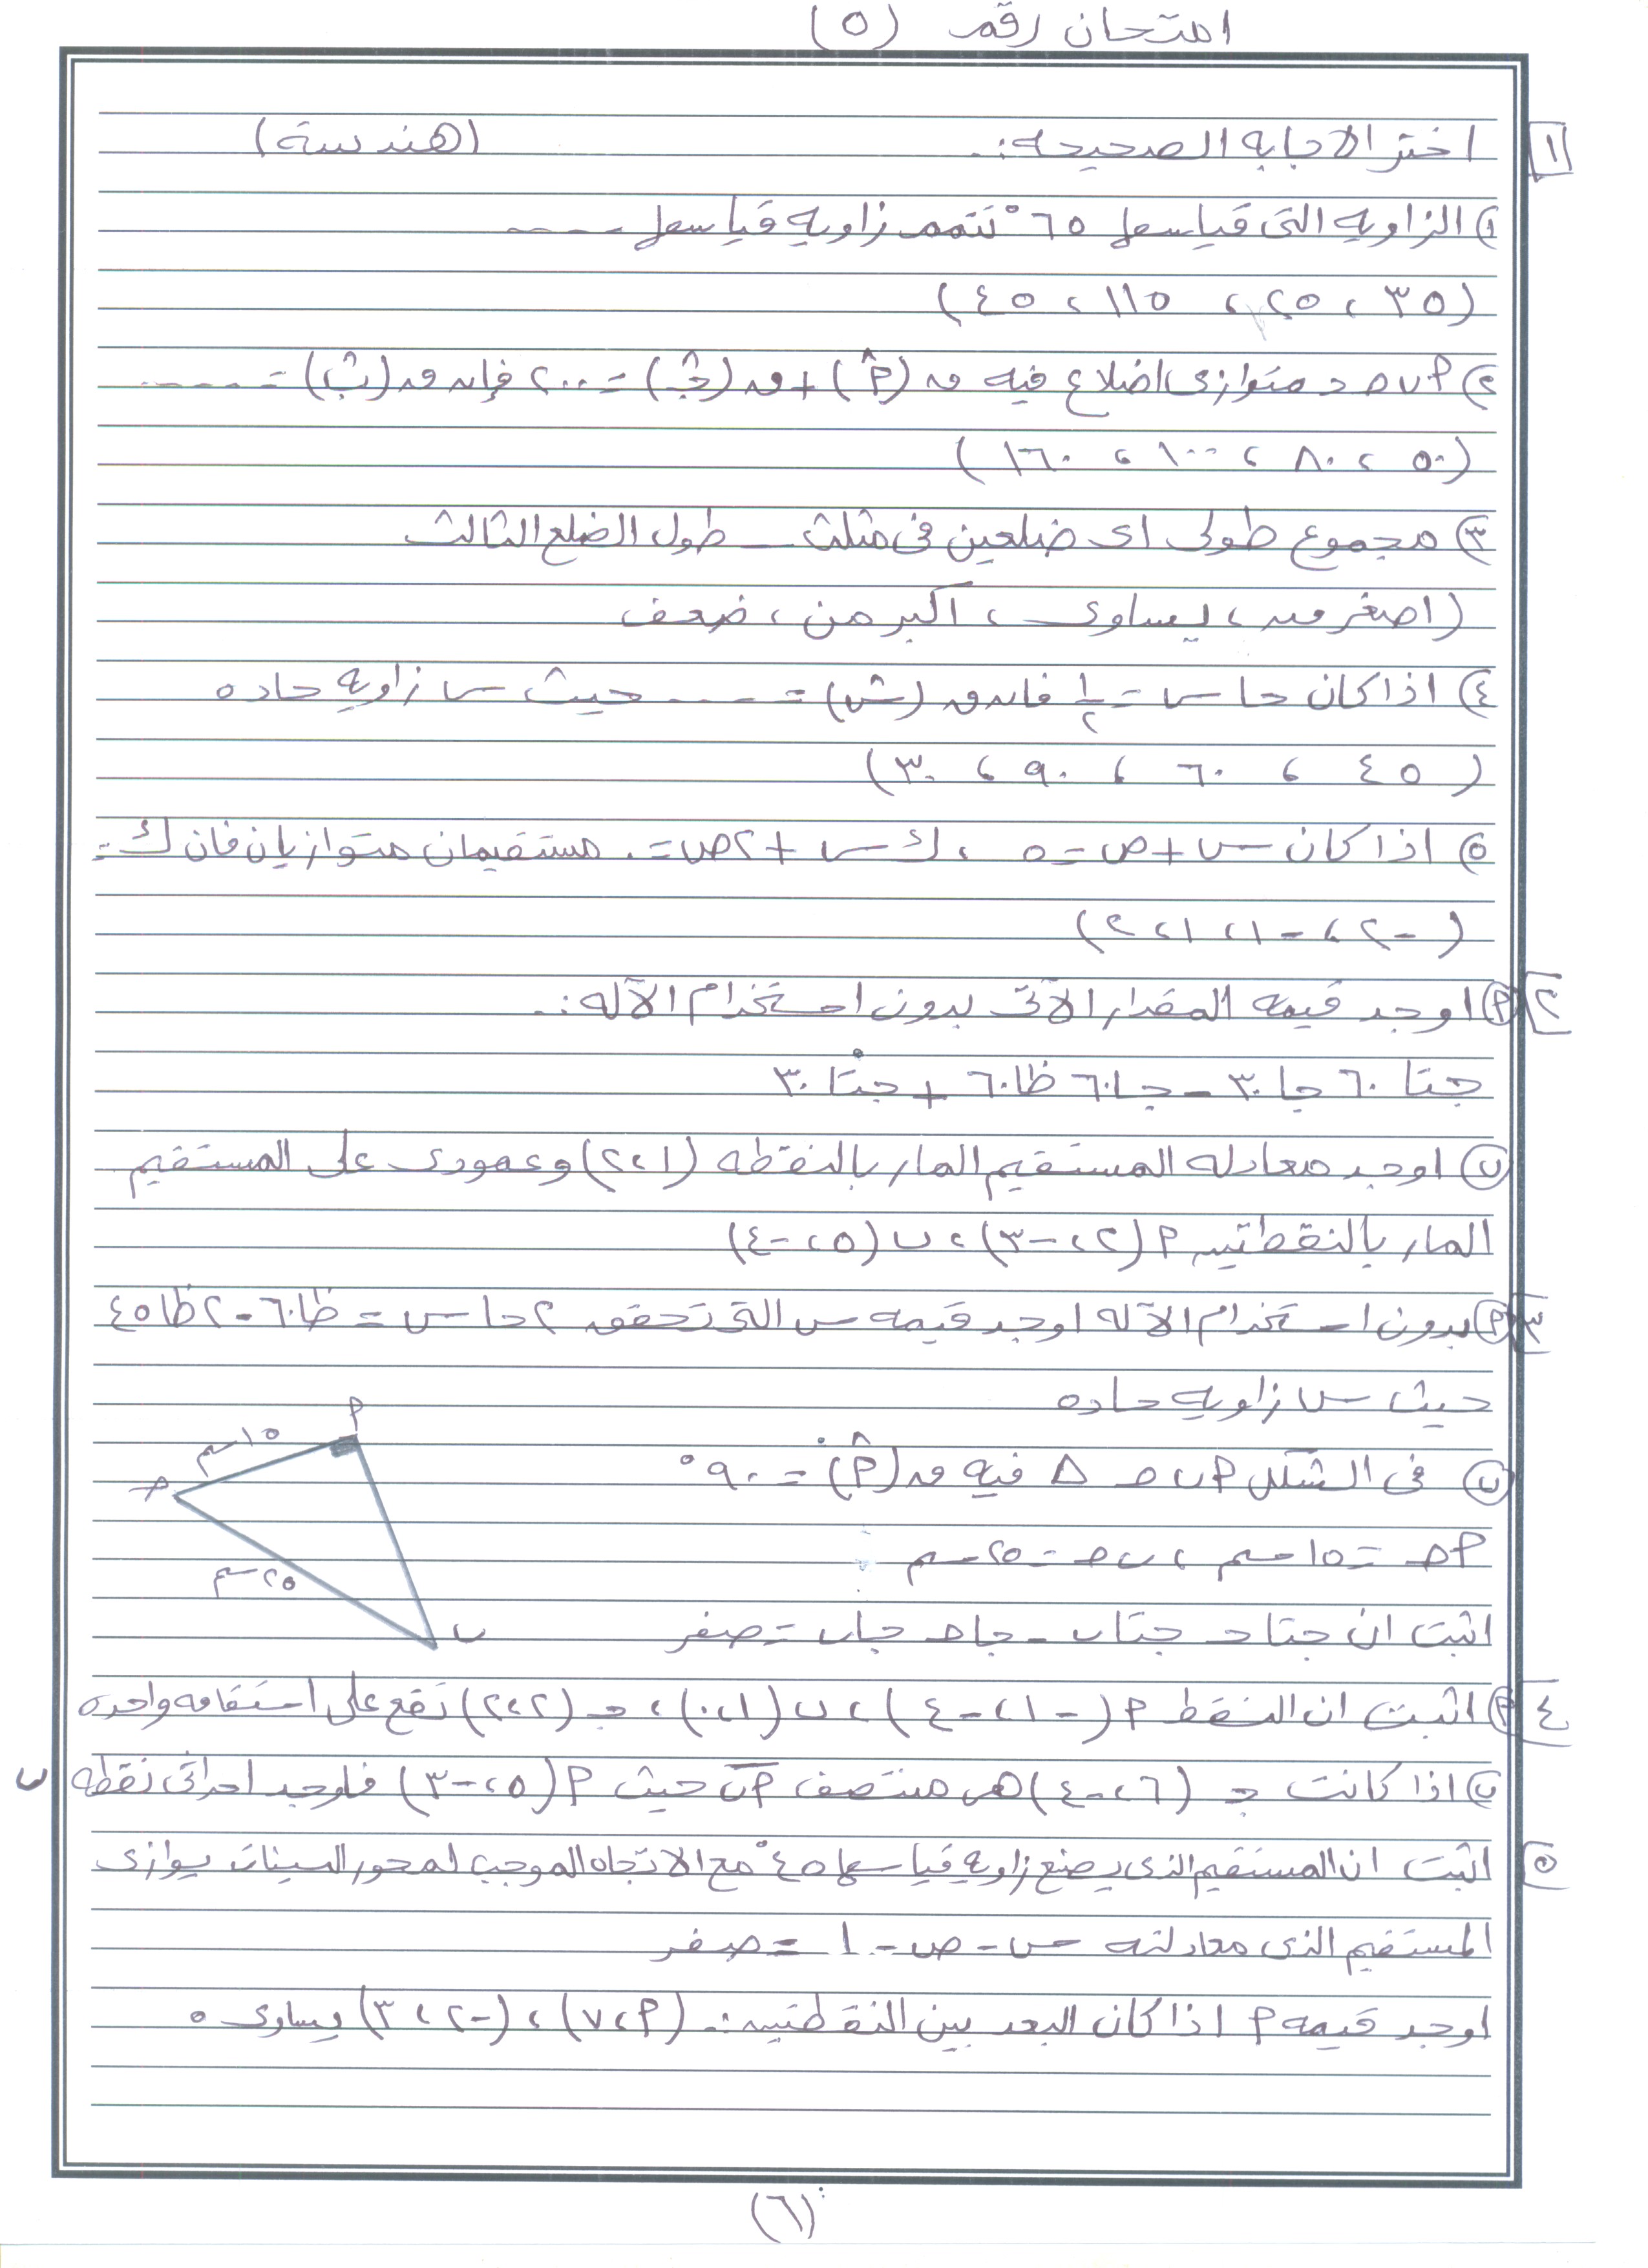 امتحان رقم (٥)
١ اختر الاجابه الصحيحه :. (هندسة)
١) الزاويه التى قياسها ٦٥° تتمم زاويه قياسها ----
(٣٥ ، ٢٥ ، ١١٥ ، ٤٥)
٢) ٢ ب حـ د متوازى اضلاع فيه ق (أ) + ق (جـ) = ٢٠٠ فإن ق (ب) = ----
(٥٠ ، ٨٠ ، ١٠٠ ، ١٦٠)
٣) مجموع طولى اى ضلعين فى مثلث ــ طول الضلع الثالث
(اصغر من ، يساوى ، اكبر من ، ضعف
٤) اذا كان حا س = ١/٢ فان ق (س) = ---- حيث س زاويه حاده
(٤٥ ، ٦٠ ، ٩٠ ، ٣٠)
٥) اذا كان س + ص = ٥ ، ك س + ٢ ص = ٠ مستقيمان متوازيان فان ك =
(-٢ ، -١ ، ١ ، ٢)
٢ أ) اوجد قيمه المقدار الآتى بدون استخدام الآله :.
جتا ٦٠ جا ٣٠ - جا ٦٠ ظا ٦٠ + جتا٢ ٣٠
ب) اوجد معادله المستقيم المار بالنقطه (١ ، ٢) وعمودى على المستقيم
المار بالنقطتين أ (٢ ، -٣) ، ب (٥ ، -٤)
٣ أ) بدون استخدام الآله اوجد قيمه س التى تحقق ٢ حا س = ظا٢ ٦٠ - ٢ ظا ٤٥
حيث س زاويه حاده
ب) فى الشكل أ ب حـ Δ فيه ق (أ) = ٩٠°
أ حـ = ١٥ سم ، ب حـ = ٢٥ سم
اثبت ان جتا حـ جتا ب - جا حـ جا ب = صفر
أ
١٥ سم
حـ
٢٥ سم
ب
٤ أ) اثبت ان النقط أ (-١ ، -٤) ، ب (١ ، ٠) ، جـ (٢ ، ٢) تقع على استقامه واحده
ب) اذا كانت جـ (٦ ، -٤) هى منتصف أ ب حيث أ (٥ ، -٣) فاوجد احداثى نقطه ب
٥ اثبت ان المستقيم الذى يصنع زاويه قياسها ٤٥° مع الاتجاه الموجب لمحور السينات يوازى
المستقيم الذى معادلته س - ص - ١ = صفر
اوجد قيمه أ اذا كان البعد بين النقطتين :. (أ ، ٧) ، (-٢ ، ٣) يساوى ٥
(٦)